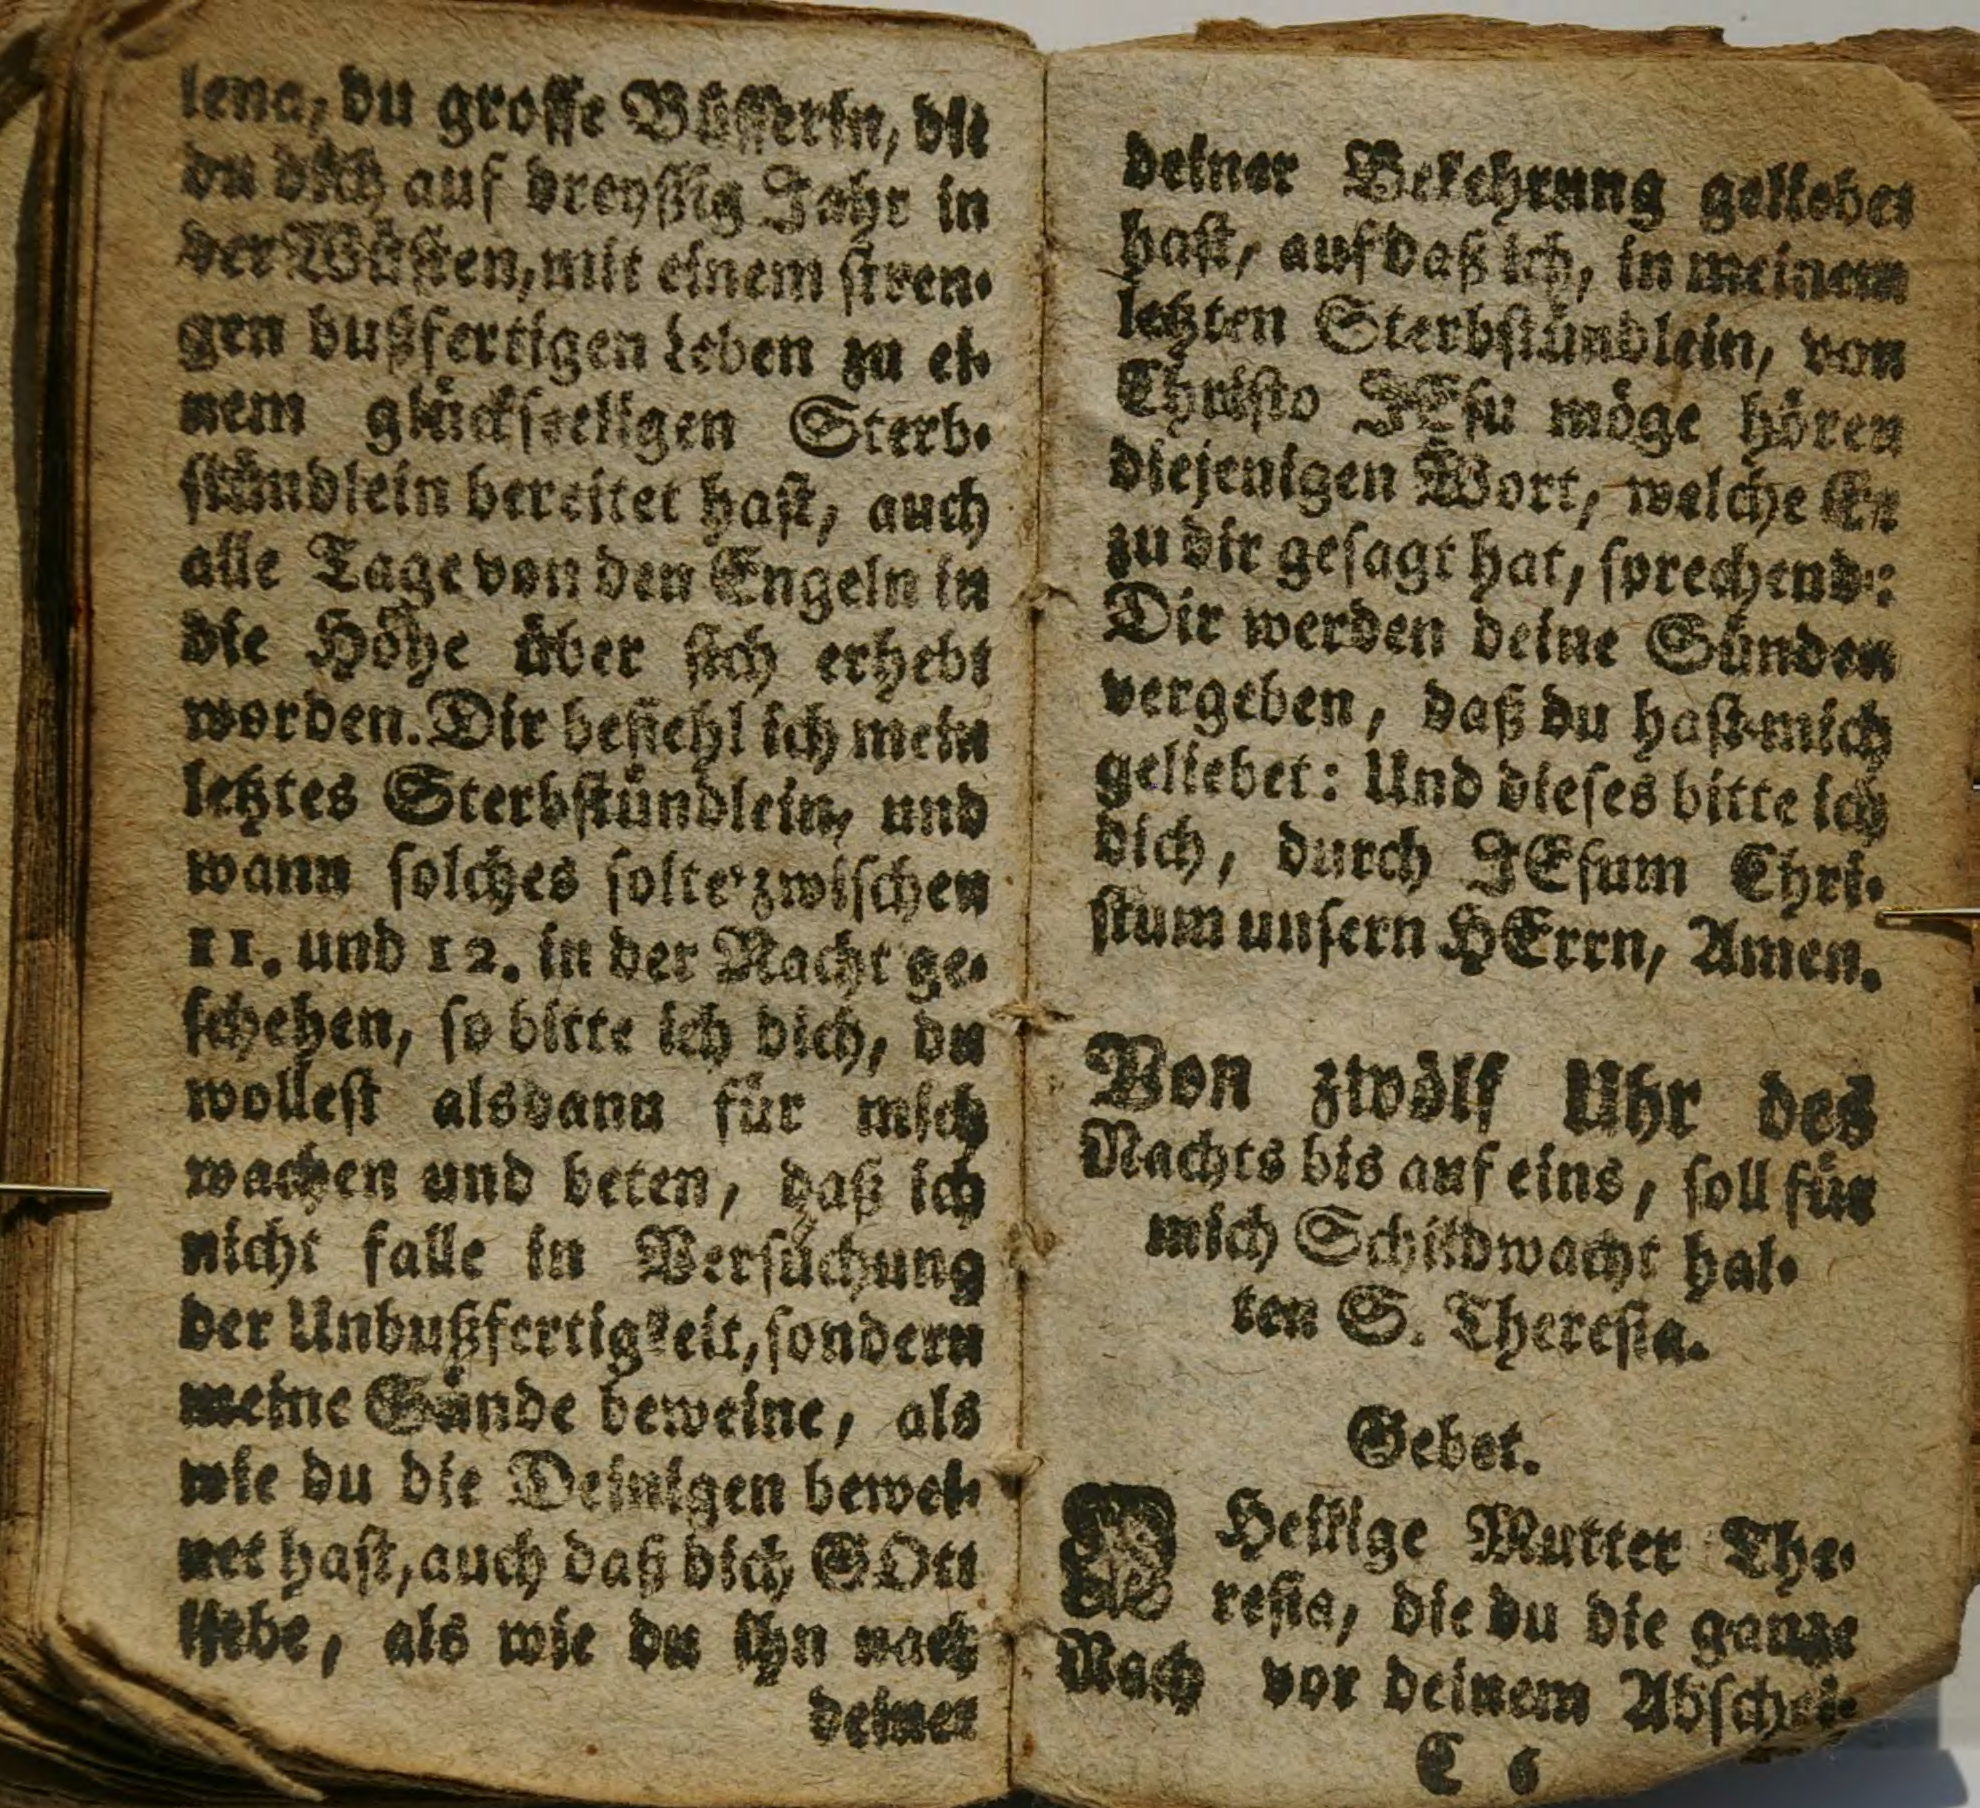 lena, du grosse Büsserin, die
du dich auf dreyßig Jahr in
der Wüsten, mit einem stren-
gen bußfertigen Leben zu ei-
nem glückseeligen Sterb-
stündlein bereitet hast, auch
alle Tage von den Engeln in
die Höhe über sich erhebt
worden. Dir befiehl ich mein
letztes Sterbstündlein, und
wann solches solte zwischen
11. und 12. in der Nacht ge-
schehen, so bitte ich dich, du
wollest alsdann für mich
wachen und beten, daß ich
nicht falle in Versuchung
der Unbußfertigkeit, sondern
meine Sünde beweine, als
wie du die Deinigen bewei-
net hast, auch daß dich GOtt
liebe, als wie du ihn nach
deiner
deiner Bekehrung geliebet
hast, auf daß ich, in meinem
letzten Sterbstündlein, von
Christo JEsu möge hören
diejenigen Wort, welche Er
zu dir gesagt hat, sprechend:
Dir werden deine Sünden
vergeben, daß du hast mich
geliebet: Und dieses bitte ich
dich, durch JEsum Chri-
stum unsern HErrn, Amen.
Von zwölf Uhr des
Nachts bis auf eins, soll für
mich Schildwacht hal-
ten S. Theresia.
Gebet.
O Heilige Mutter The-
resia, die du die ganze
Nach vor deinem Abschei-
C 6